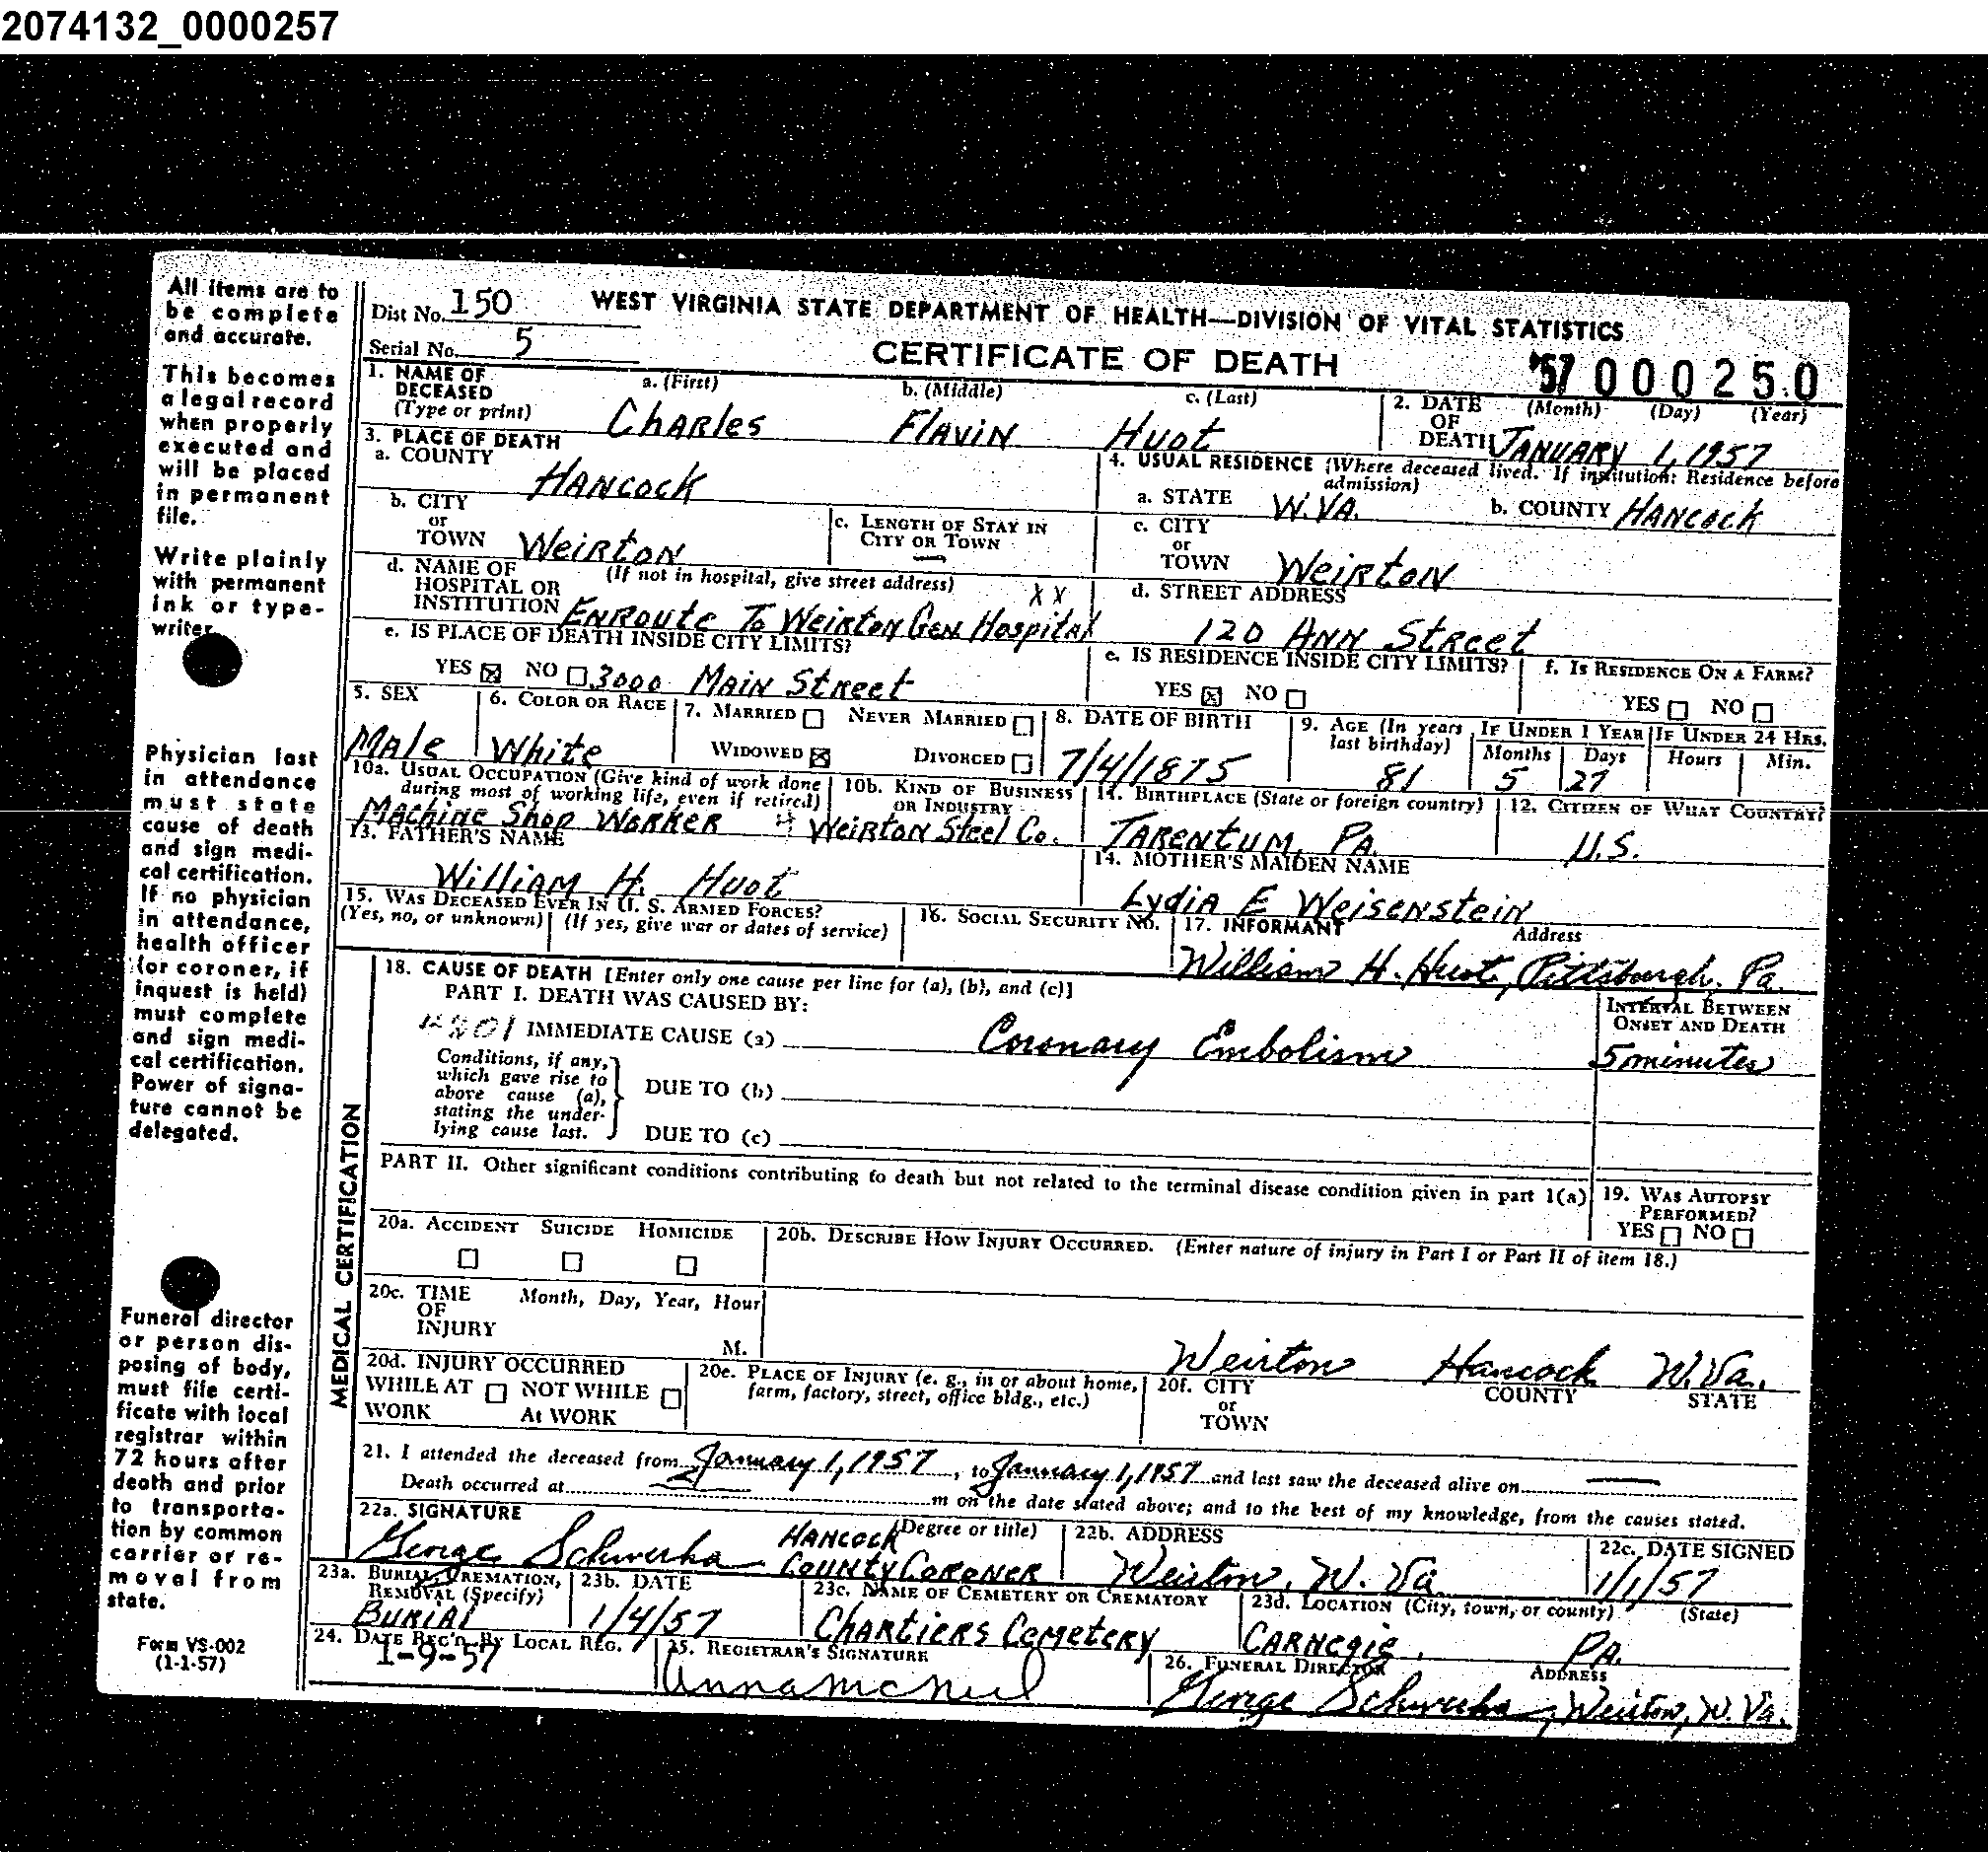 2074132_0000257
All items are to
be complete
and accurate.
This becomes
a legal record
when properly
executed and
will be placed
in permanent
file.
Write plainly
with permanent
ink or type-
writer
Physician last
in attendance
must state
cause of death
and sign medi-
cal certification.
If no physician
in attendance,
health officer
(or coroner, if
inquest is held)
must complete
and sign medi-
cal certification.
Power of signa-
ture cannot be
delegated.
Funeral director
or person dis-
posing of body,
must file certi-
ficate with local
registrar within
72 hours after
death and prior
to transporta-
tion by common
carrier or re-
moval from
state.
Form VS-002
(1-1-57)
Dist No. 150 WEST VIRGINIA STATE DEPARTMENT OF HEALTH—DIVISION OF VITAL STATISTICS
Serial No. 5 CERTIFICATE OF DEATH '57 000250
1. NAME OF DECEASED (Type or print) a. (First) Charles b. (Middle) Flavin c. (Last) Huot
2. DATE OF DEATH (Month) (Day) (Year) January 1, 1957
3. PLACE OF DEATH
a. COUNTY Hancock
b. CITY or TOWN Weirton c. LENGTH OF STAY IN CITY OR TOWN —
d. NAME OF HOSPITAL OR INSTITUTION (If not in hospital, give street address) XX Enroute To Weirton Gen. Hospital
e. IS PLACE OF DEATH INSIDE CITY LIMITS?
YES ☒ NO ☐ 3000 Main Street
4. USUAL RESIDENCE (Where deceased lived. If institution: Residence before admission)
a. STATE W.VA. b. COUNTY Hancock
c. CITY or TOWN Weirton
d. STREET ADDRESS
120 Ann Street
e. IS RESIDENCE INSIDE CITY LIMITS? YES ☒ NO ☐ f. IS RESIDENCE ON A FARM? YES ☐ NO ☐
5. SEX Male 6. COLOR OR RACE White 7. MARRIED ☐ NEVER MARRIED ☐ WIDOWED ☒ DIVORCED ☐
8. DATE OF BIRTH 7/4/1875 9. AGE (In years last birthday) 81 IF UNDER 1 YEAR Months 5 Days 27 IF UNDER 24 HRS. Hours Min.
10a. USUAL OCCUPATION (Give kind of work done during most of working life, even if retired) Machine Shop Worker
10b. KIND OF BUSINESS OR INDUSTRY Weirton Steel Co.
11. BIRTHPLACE (State or foreign country) Tarentum, PA. 12. CITIZEN OF WHAT COUNTRY? U.S.
13. FATHER'S NAME William H. Huot
14. MOTHER'S MAIDEN NAME Lydia E Weisenstein
15. WAS DECEASED EVER IN U. S. ARMED FORCES?
(Yes, no, or unknown) (If yes, give war or dates of service)
16. SOCIAL SECURITY NO.
17. INFORMANT Address
William H. Huot, Pittsburgh, Pa.
MEDICAL CERTIFICATION
18. CAUSE OF DEATH [Enter only one cause per line for (a), (b), and (c)]
PART I. DEATH WAS CAUSED BY:
4201 IMMEDIATE CAUSE (a) Coronary Embolism
INTERVAL BETWEEN ONSET AND DEATH 5 minutes
Conditions, if any, which gave rise to above cause (a), stating the under-lying cause last.
DUE TO (b)
DUE TO (c)
PART II. Other significant conditions contributing to death but not related to the terminal disease condition given in part 1(a)
19. WAS AUTOPSY PERFORMED? YES ☐ NO ☐
20a. ACCIDENT ☐ SUICIDE ☐ HOMICIDE ☐
20b. DESCRIBE HOW INJURY OCCURRED. (Enter nature of injury in Part I or Part II of item 18.)
20c. TIME OF INJURY Month, Day, Year, Hour M.
20d. INJURY OCCURRED WHILE AT WORK ☐ NOT WHILE At WORK ☐
20e. PLACE OF INJURY (e. g., in or about home, farm, factory, street, office bldg., etc.)
20f. CITY or TOWN Weirton COUNTY Hancock STATE W.Va.
21. I attended the deceased from January 1, 1957, to January 1, 1957 and last saw the deceased alive on —
Death occurred at — m on the date stated above; and to the best of my knowledge, from the causes stated.
22a. SIGNATURE George Schwerha (Degree or title) Hancock County Coroner
22b. ADDRESS Weirton, W. Va. 22c. DATE SIGNED 1/1/57
23a. BURIAL, CREMATION, REMOVAL (Specify) Burial 23b. DATE 1/4/57
23c. NAME OF CEMETERY OR CREMATORY Chartiers Cemetery
23d. LOCATION (City, town, or county) (State) Carnegie, PA.
24. DATE REC'D. BY LOCAL REG. 1-9-57
25. REGISTRAR'S SIGNATURE Anna McNeil
26. FUNERAL DIRECTOR ADDRESS
George Schwerha, Weirton, W. Va.